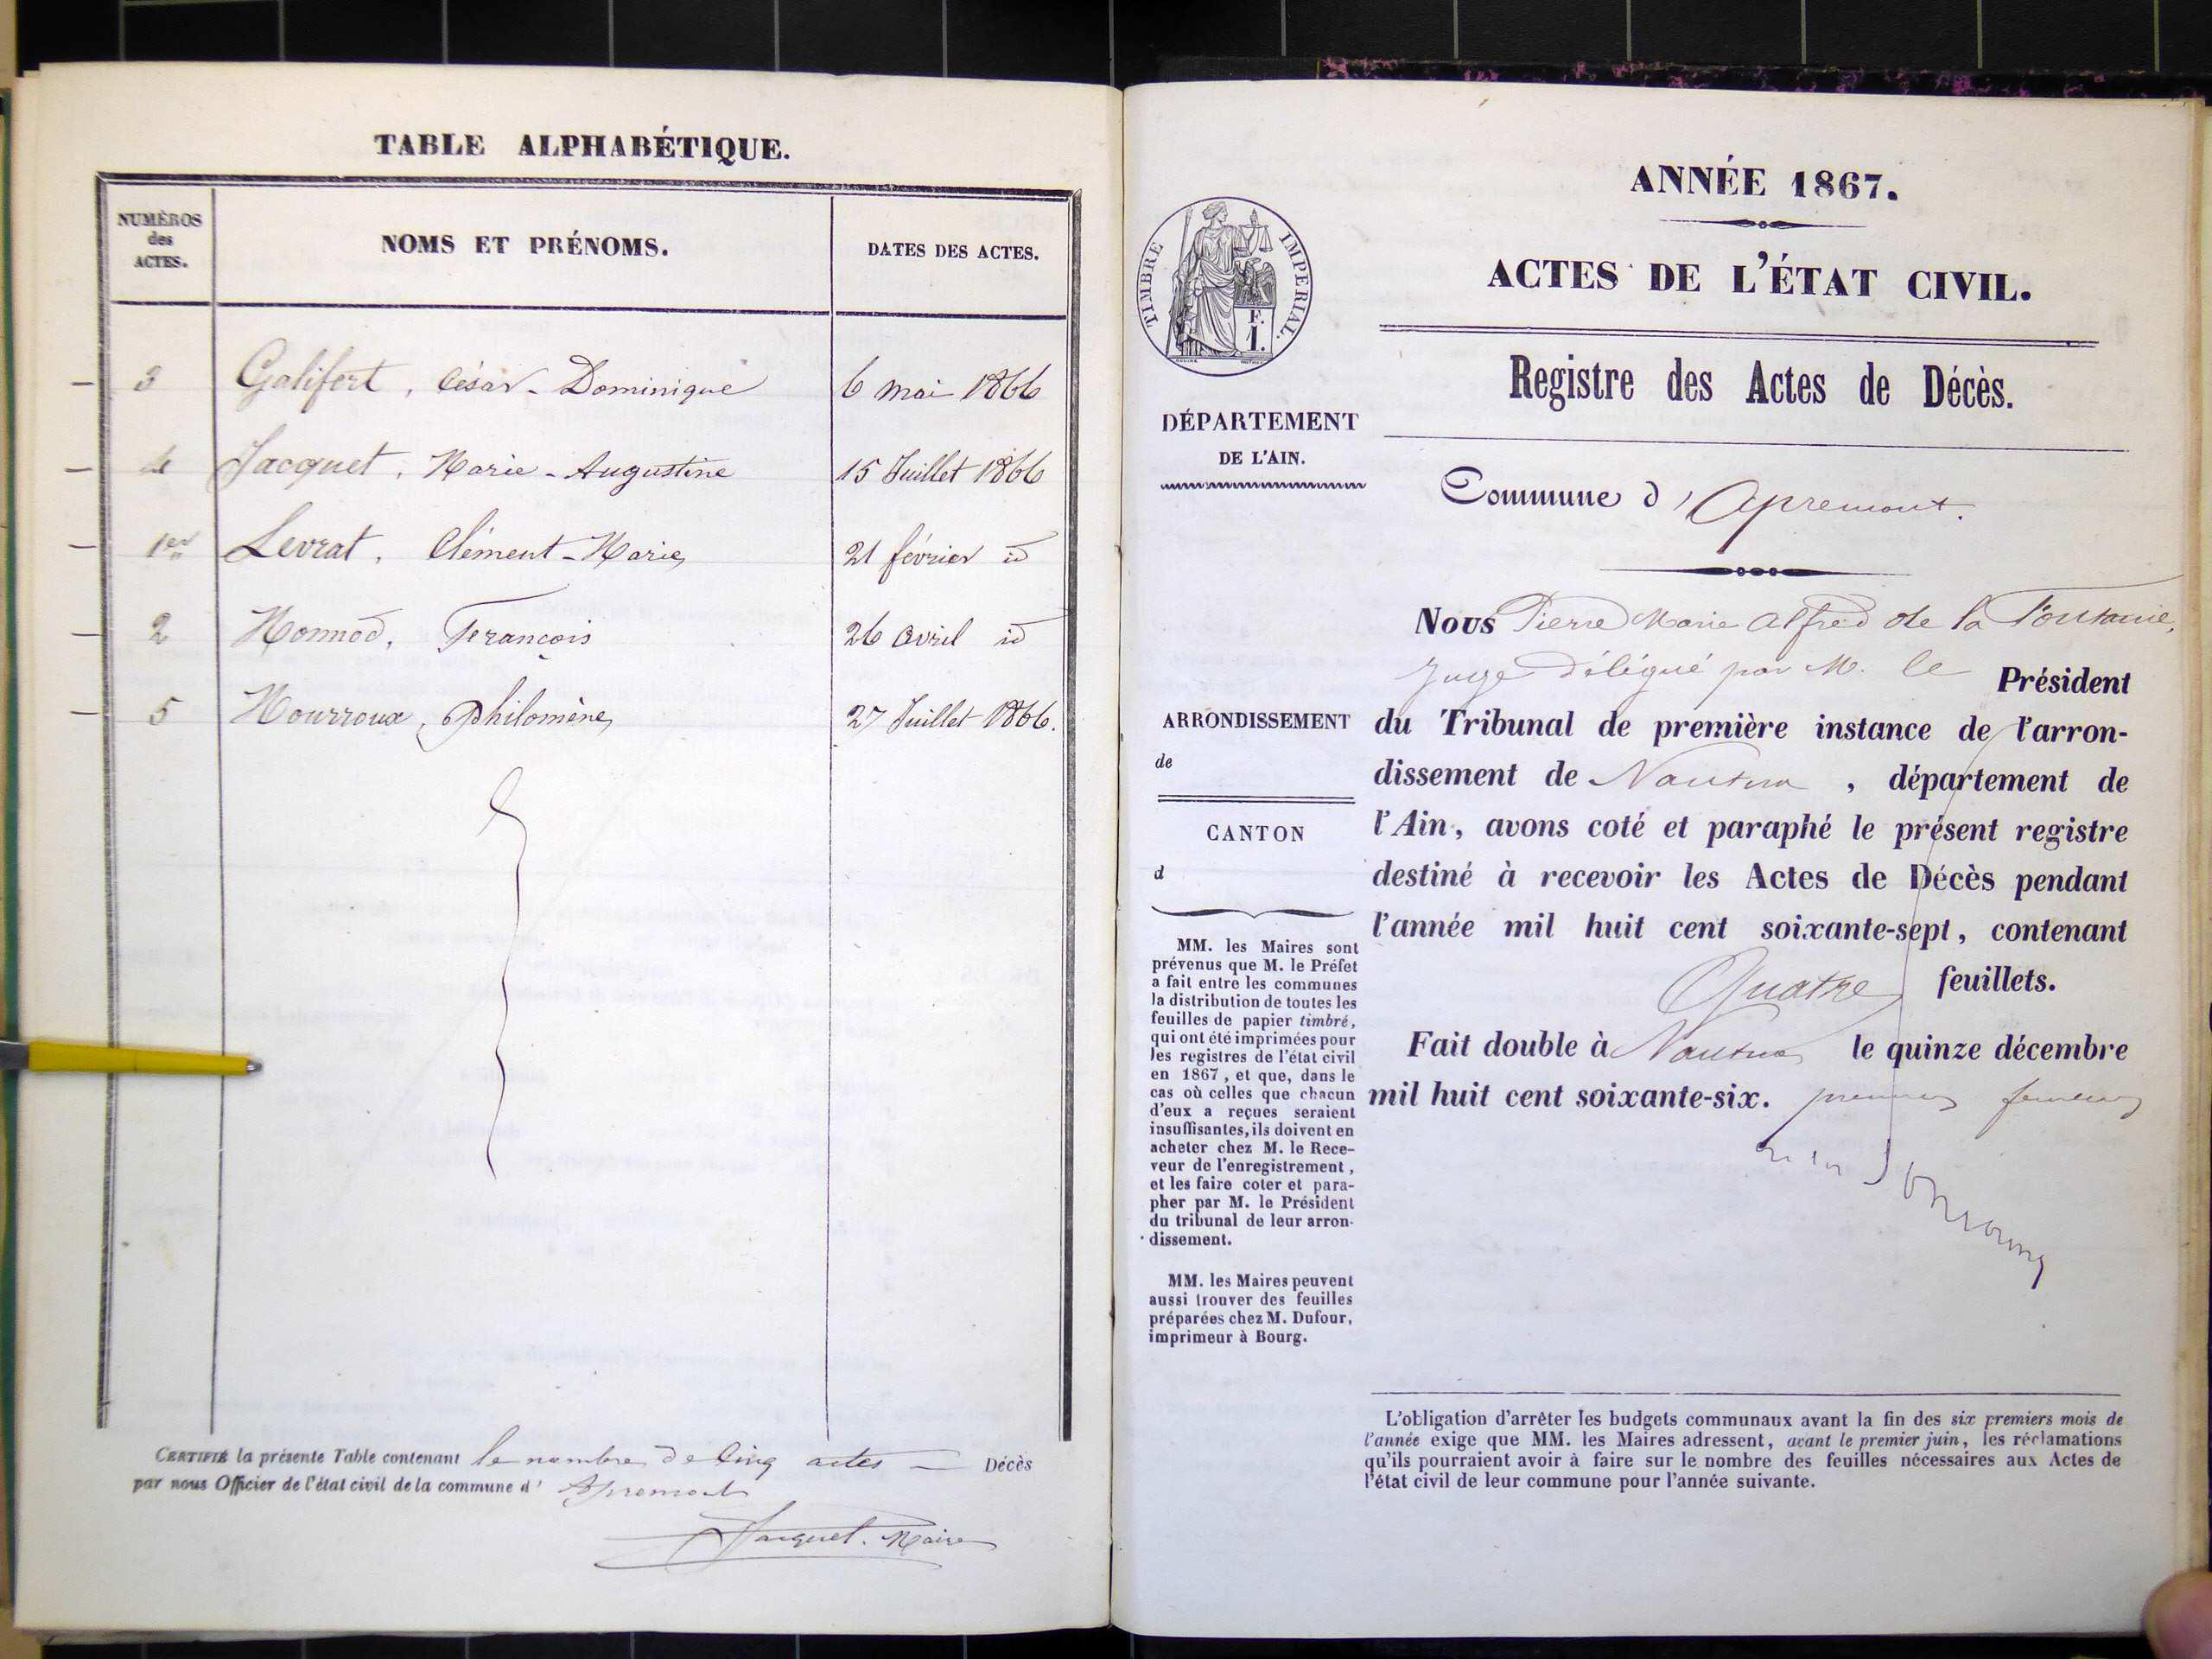 TABLE ALPHABÉTIQUE.
NUMÉROS
des
ACTES.
NOMS ET PRÉNOMS.
DATES DES ACTES.
3 Galifert, César-Dominique 6 mai 1866
4 Jacquet, Marie-Augustine 15 Juillet 1866
1er Levrat, Clément-Marie 21 février id
2 Monnod, François 26 avril id
5 Mourroux, Philomène 27 Juillet 1866.
CERTIFIÉ la présente Table contenant le nombre de Cinq actes — Décès
par nous Officier de l'état civil de la commune d' Apremont
Jacquet. Maire
TIMBRE IMPERIAL.
F.
1.
DÉPARTEMENT
DE L'AIN.
ARRONDISSEMENT
de
CANTON
d
MM. les Maires sont
prévenus que M. le Préfet
a fait entre les communes
la distribution de toutes les
feuilles de papier timbré,
qui ont été imprimées pour
les registres de l'état civil
en 1867, et que, dans le
cas où celles que chacun
d'eux a reçues seraient
insuffisantes, ils doivent en
acheter chez M. le Rece-
veur de l'enregistrement,
et les faire coter et para-
pher par M. le Président
du tribunal de leur arron-
dissement.
MM. les Maires peuvent
aussi trouver des feuilles
préparées chez M. Dufour,
imprimeur à Bourg.
ANNÉE 1867.
ACTES DE L'ÉTAT CIVIL.
Registre des Actes de Décès.
Commune d'Apremont.
Nous Pierre Marie Alfred de la
Juge délégué par M. le Président
du Tribunal de première instance de l'arron-
dissement de Nantua, département de
l'Ain, avons coté et paraphé le présent registre
destiné à recevoir les Actes de Décès pendant
l'année mil huit cent soixante-sept, contenant
Quatre feuillets.
Fait double à Nantua le quinze décembre
mil huit cent soixante-six. premier feuillet
L'obligation d'arrêter les budgets communaux avant la fin des six premiers mois de
l'année exige que MM. les Maires adressent, avant le premier juin, les réclamations
qu'ils pourraient avoir à faire sur le nombre des feuilles nécessaires aux Actes de
l'état civil de leur commune pour l'année suivante.